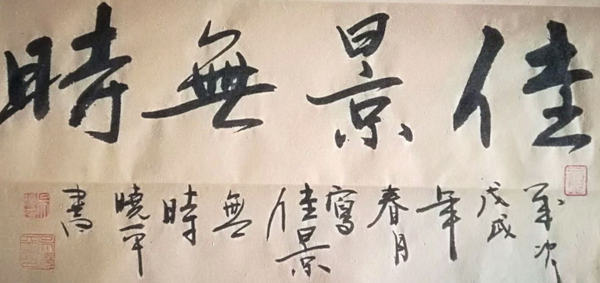 佳景無時
歲次
戊戌
年
春月
寫
佳景
無
時
曉平
書